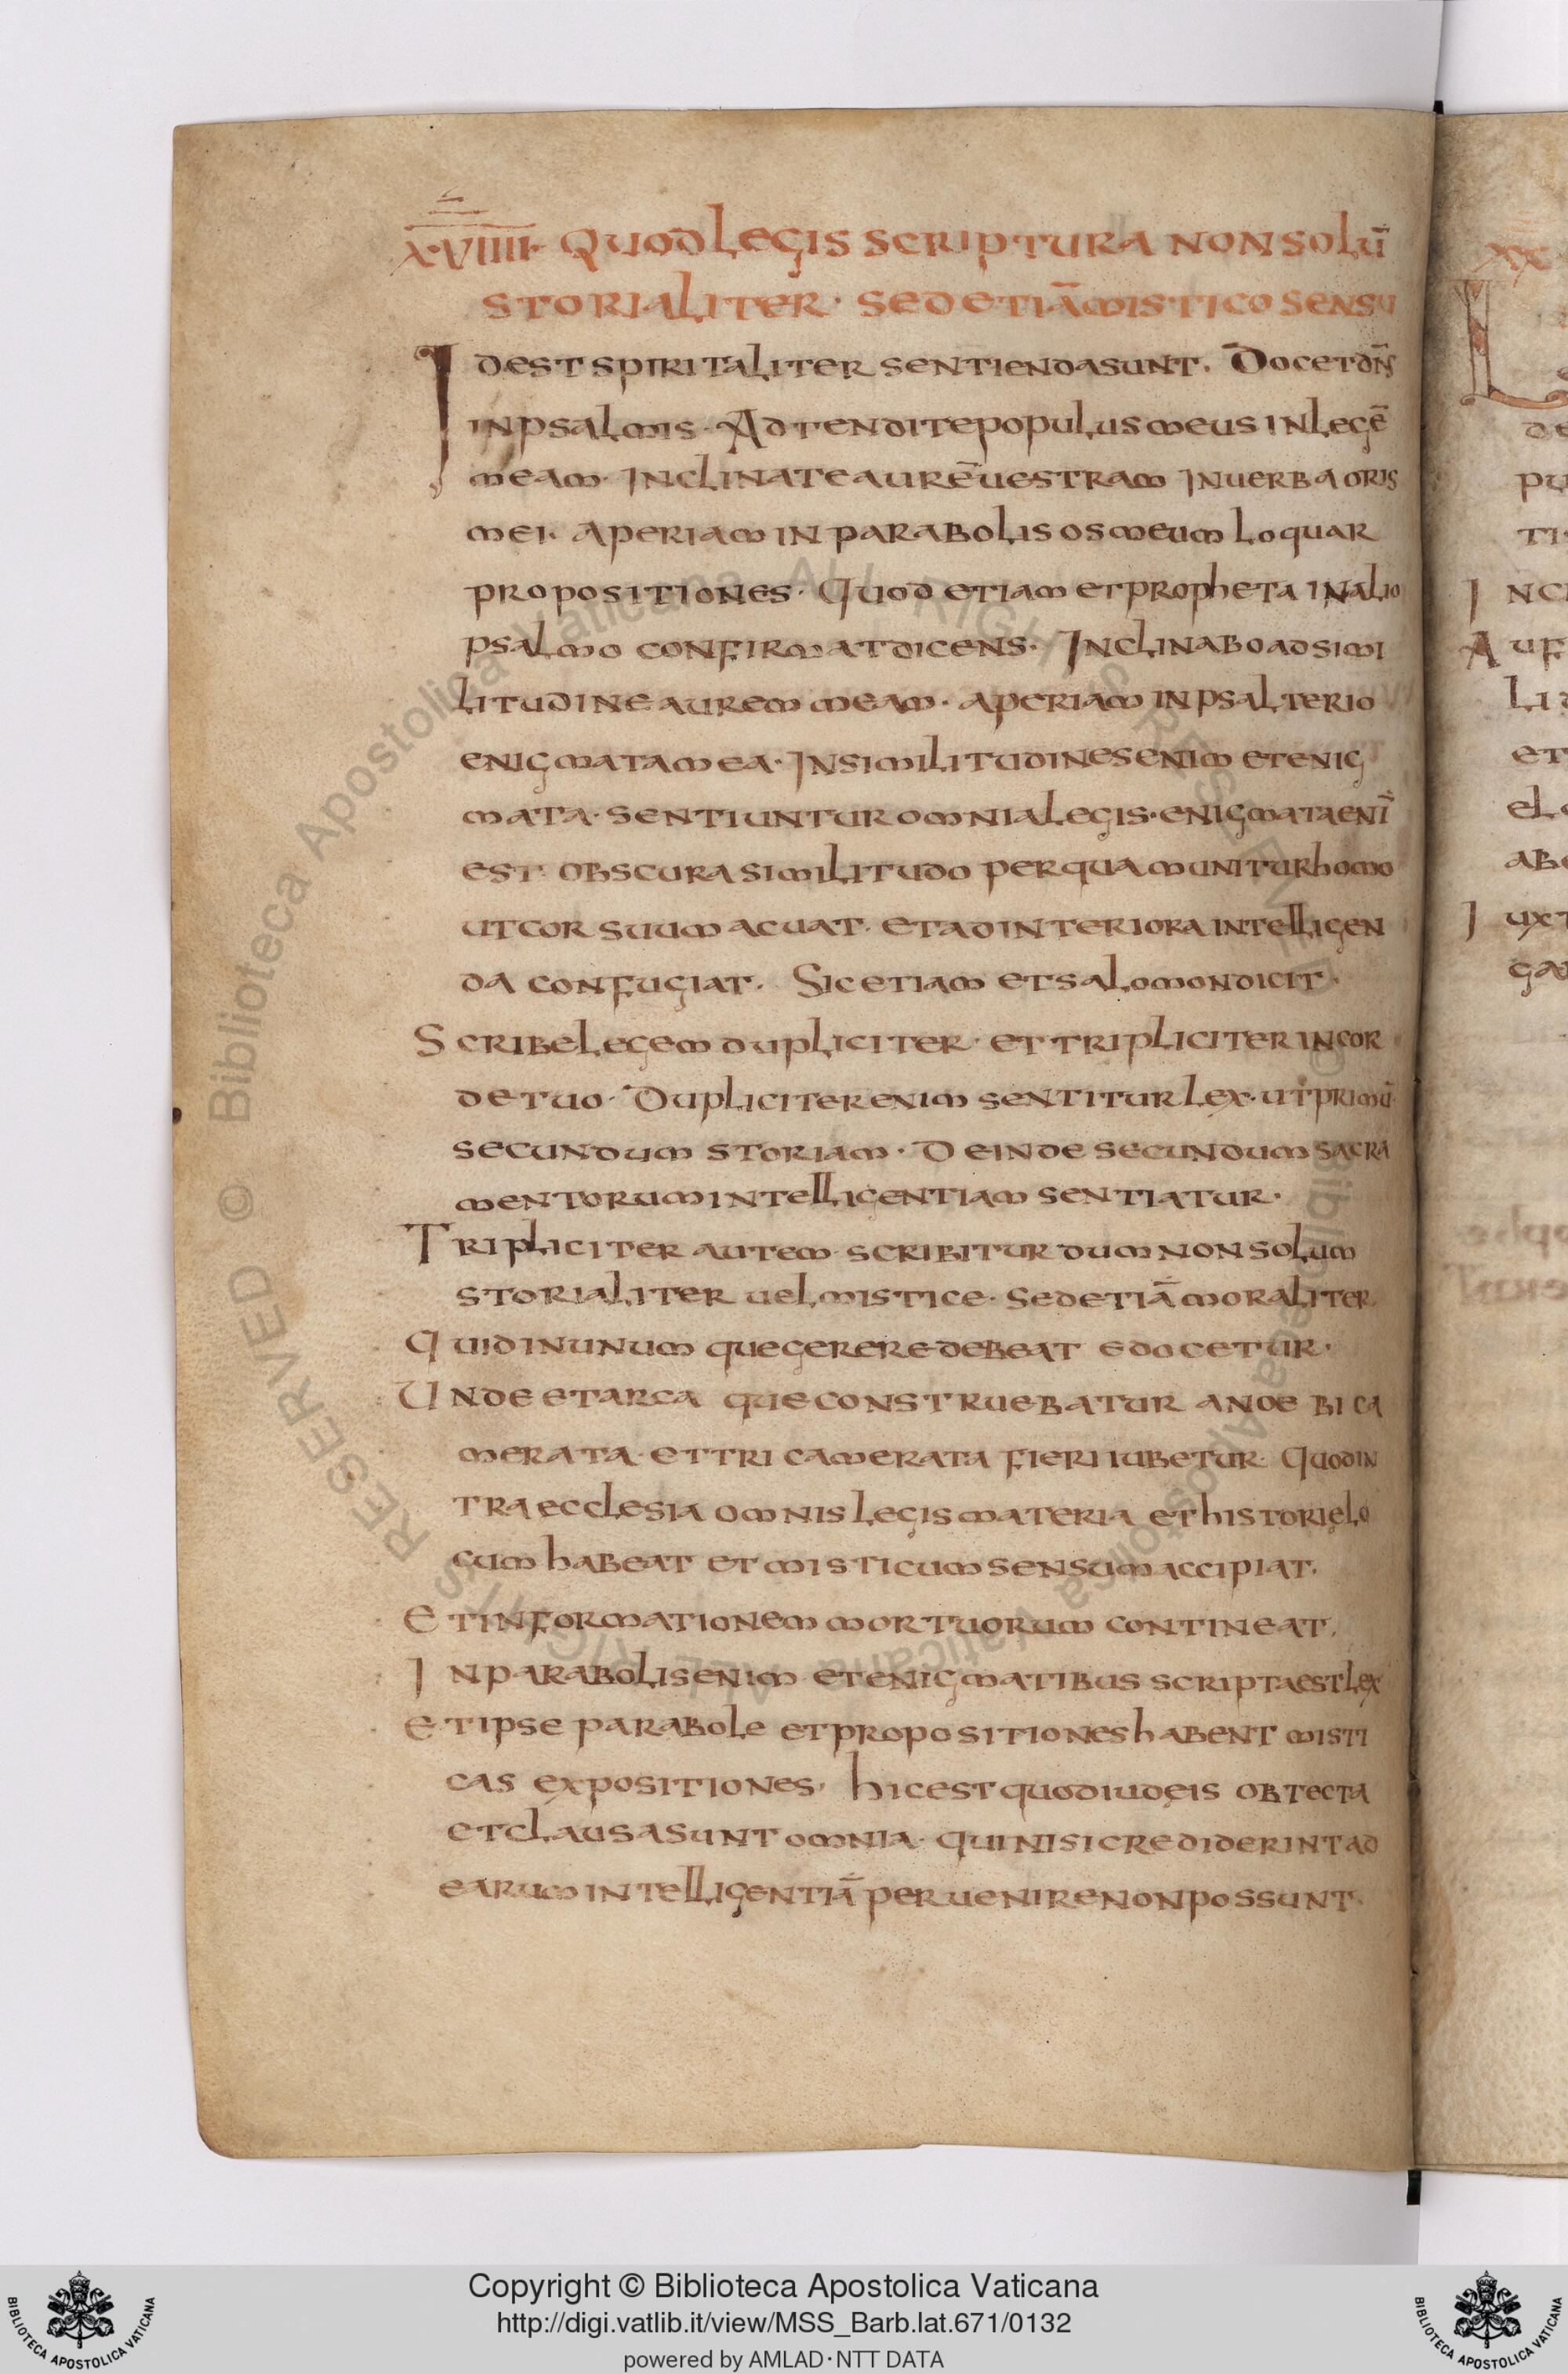 X·VIIII· QUOD LEGIS SCRIPTURA NON SOLŪ
STORIALITER· SED ETIĀ MISTICO SENSU
Id est spiritaliter sentienda sunt. Docet dn̄s
in psalmis· Adtendite populus meus in legē
meam· Inclinate aurē uestram in uerba oris
mei· aperiam in parabolis os meum loquar
propositiones· Quod etiam et propheta in alio
psalmo confirmat dicens· Inclinabo ad simi
litudine aurem meam· aperiam in psalterio
enigmata mea· In similitudines enim et enig
mata· sentiuntur omnia legis· enigmata enī
est obscura similitudo per quam unitur homo
ut cor suum acuat· et ad interiora intelligen
da confugiat. Sic etiam et salomon dicit·
Scribe legem dupliciter· et tripliciter in cor
de tuo· Dupliciter enim sentitur lex· ut primū
secundum storiam· Deinde secundum sacra
mentorum intelligentiam sentiatur·
Tripliciter autem scribitur dum non solum
storialiter uel mistice· sed etiā moraliter
Quid in unum que gerere debeat edocetur·
Unde et arca que construebatur a noe bica
merata· et tricamerata fieri iubetur· Quod in
tra ecclesia omnis legis materia et historię lo
cum habeat et misticum sensum accipiat.
Et in formationem mortuorum contineat.
In parabolis enim et enigmatibus scripta est lex
Et ipse parabole et propositiones habent misti
cas expositiones· hic est quod iudęis obtecta
et clausa sunt omnia· qui nisi crediderint ad
earum intelligentiā peruenire non possunt·
Copyright © Biblioteca Apostolica Vaticana
http://digi.vatlib.it/view/MSS_Barb.lat.671/0132
powered by AMLAD·NTT DATA